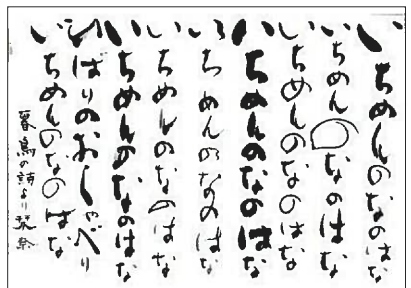 いちめんのなのはな
いちめんのなのはな
いちめんのなのはな
いちめんのなのはな
いちめんのなのはな
いちめんのなのはな
いちめんのなのはな
ひばりのおしゃべり
いちめんのなのはな
暮鳥の詩より